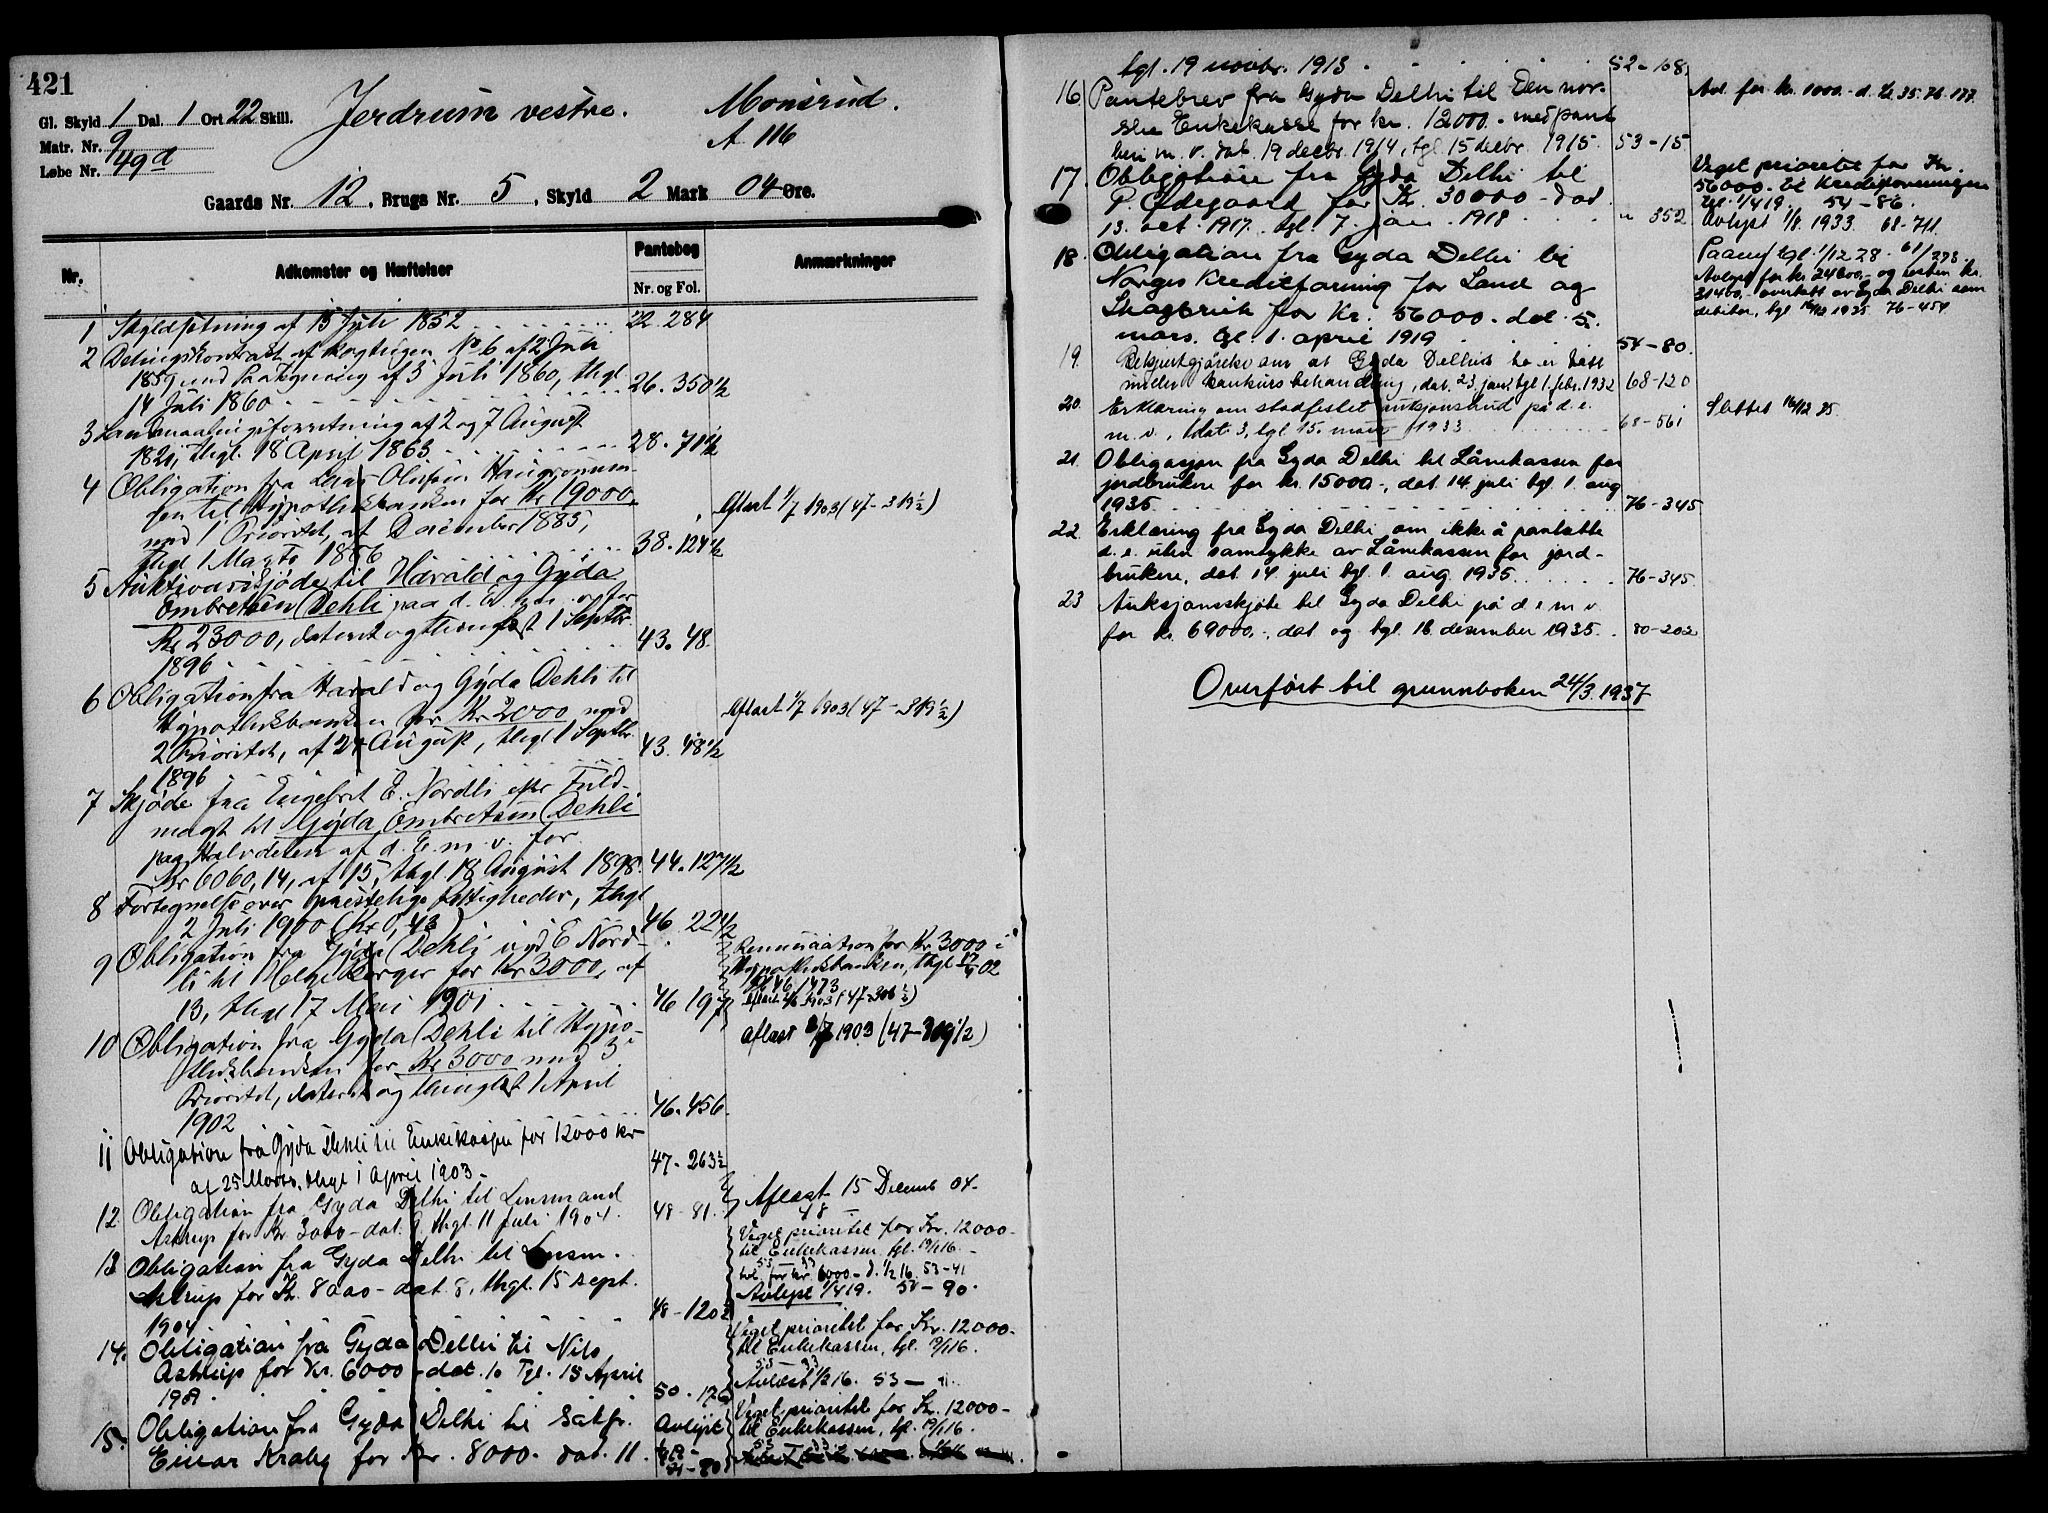 421
Gl. Skyld 1 Dal. 1 Ort 22 Skill.
Jerdrum vestre.
Monsrud.
A 116
Matr. Nr. 9
Løbe Nr. 49d
Gaards Nr. 12, Brugs Nr. 5, Skyld 2 Mark 04 Øre.
Nr.
Adkomster og Hæftelser
Pantebog
Nr. og Fol.
Anmærkninger
1 Skyldsetning af 15 Juli 1852 22. 284
2 Delingskontrakt af No 6 af 2 Juli
1859 med Paategning af 3 Juli 1860, thgl.
14 Juli 1860 26. 350 1/2
3 af 2 og 7 August
1821, thgl. 18 April 1863 28. 71 1/2
4 Obligation fra Lars Olufsen
sen til Hypothekbanken for Kr 19000,
med 1 Prioritet, af December 1885,
thgl 1 Marts 1886 38. 124 1/2
Aflæst 1/7 1903 (47-319 1/2)
5 Auktionsskjøde til Harald og Gyda
Embretsen Dehli paa d. E. m. v. for
Kr 23000, dateret og thinglæst 1 Septbr.
1896 43. 48.
6 Obligation fra Harald og Gyda Dehli til
Hypothekbanken for Kr 2000 med
2 Prioritet, af 24 August, thgl 1 Septbr.
1896 43. 48 1/2
Aflæst 1/7 1903 (47-319 1/2)
7 Skjøde fra Engebret E. Nordli efter Fuld-
magt til Gyda Embretsen Dehli
paa Halvdelen af d. E. m. v. for
Kr 6060,14, af 15, thgl 18 August 1898. 44. 127 1/2
8 Fortegnelse over præstelige Rettigheder, thgl
2 Juli 1900 (Kr 0,43) 46. 22 1/2
9 Obligation fra Gyda Dehli ved E Nord-
li til Helge Berger for Kr 3000, af
13, thgl 17 Mai 1901 46 197
Renunciation for Kr. 3000 i
Hypothekbanken, thgl 02
46/473
Aflæst 1903 (47-306 1/2)
10 Obligation fra Gyda Dehli til Hypo-
thekbanken for Kr 3000 med 3
Prioritet, dateret og thinglæst 1 April
1902 46. 456.
Aflæst 1/7 1903 (47-319 1/2)
11 Obligation fra Gyda Dehli til Enkekassen for 12000 kr
af 25 Marts, thgl 1 April 1903 47-263 1/2
12 Obligation fra Gyda Delhi til Lensmand
Astrup for Kr 3000 - dat. 9, thgl. 11 Juli 1904. 48-81.
Aflæst 15 Decemb 04.
48
13 Obligation fra Gyda Delhi til Lensm.
Astrup for Kr. 8000 - dat. 8, thgl. 15 sept.
1904 48-120
Veget prioritet for Kr. 12000-
til Enkekassen, tgl. 19/1 16.
53 - 33
Avl. for kr. 6000 - d. 1/2 16. 53-41
Avlyst 1/4 19. 54-90.
14. Obligation fra Gyda Delhi til Nils
Astrup for Kr. 6000 - dat. 10 Tgl. 15 April
1909 50. 176
Veget prioritet for Kr. 12000-
til Enkekassen, tgl. 19/1 16.
53 - 33
Avlæst 1/2 16. 53 - 41
15. Obligation fra Gyda Delhi til Sakfr.
Einar Krabÿ for Kr. 8000. dat. 11.
Avlyst
Veget prioritet for Kr. 12000-
til Enkekassen, tgl. 19/1 16.
53 33
tgl. 19 novbr. 1913. 52-108.
Avl. for kr. 1000.- d.
16 Pantebrev fra Gyda Delhi til Den nor-
ske Enkekasse for kr. 12000. - med pant
beri m. v. dat. 19 decbr. 1914, tgl. 15 decbr. 1915. 53-15
17. Obligation fra Gyda Delhi til
P. Ødegaard for Kr. 30000 - dat.
13. oct. 1917. tgl. 7. jan. 1918 " 352
Veget prioritet for Kr.
56000.- til Kreditforeningen
tgl. 1/4 19. 54-86.
Avlyst 1/8. 1933. 68-741.
18. Obligation fra Gyda Delhi til
Norges Kreditforening for Land og
Skogbruk for Kr. 56000. dat. 5.
mars. tgl. 1. april 1919 54-80.
Paany tgl. 1/12 28. 61/273.
Avlyst for kr. 24600,- og resten kr.
31400.- overtatt av Gyda Delhi som
debitor, tgl 16/12 1935 76-454
19. Bekjentgjørelse om at Gyda Delhis bo er tatt
under konkursbehandling, dat. 23. jan. tgl 1. febr. 1932 68-120
20. Erklæring om stadfestet auksjonsbud på d. e.
m. v., dat. 3, tgl 15. mars 1933 68-561
Slettet 16/12 35.
21. Obligasjon fra Gyda Delhi til Lånekassen for
jordbrukere for kr. 15000.-, dat. 14. juli tgl. 1. aug
1935 76-345
22. Erklæring fra Gyda Delhi om ikke å pantsette
d. e. uten samtykke av Lånekassen for jord-
brukere, dat. 14. juli tgl. 1. aug. 1935. 76-345
23 Auksjonsskjøte til Gyda Delhi på d e m v.
for kr. 69000.-, dat. og tgl. 16. desember 1935. 80-202
Overført til grunnboken 24/3. 1937